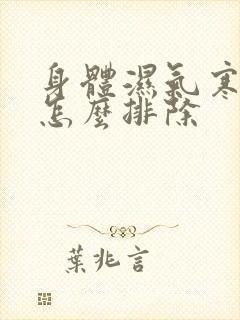 身體濕氣寒
怎麼排除
葉兆言